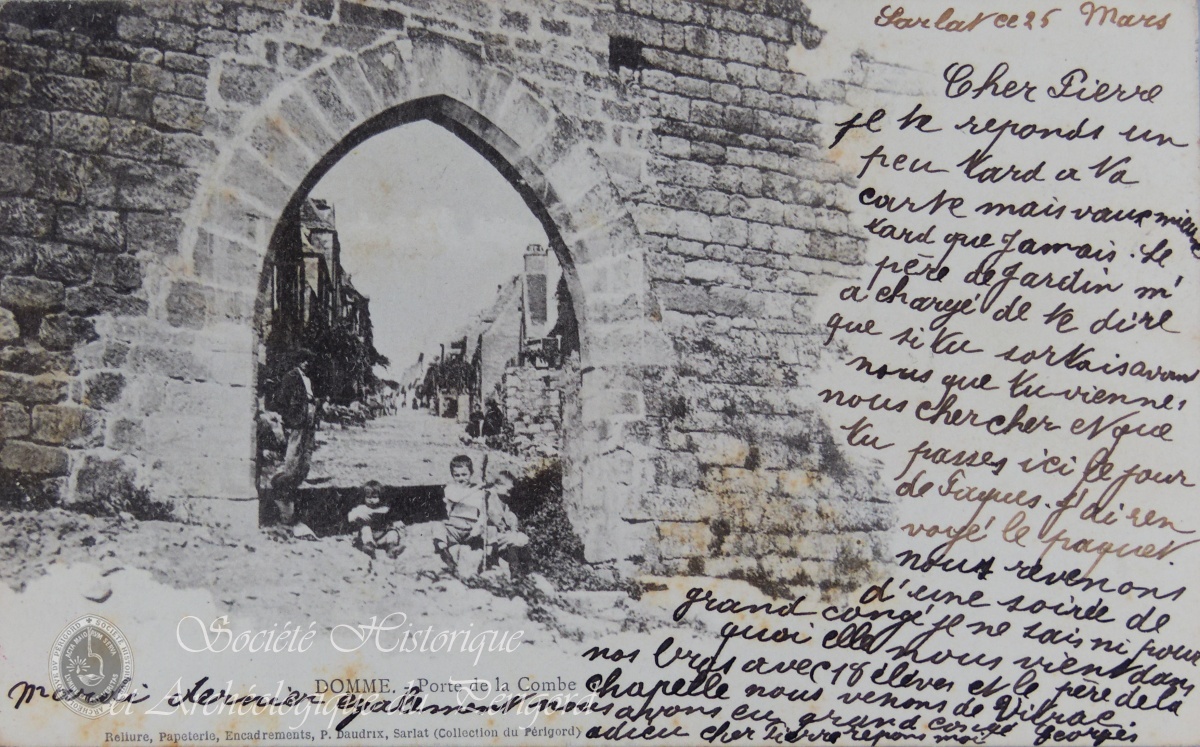 Sarlat ce 25 Mars
Cher Pierre
je te reponds un
peu tard a ta
carte mais vaux mieux
tard que Jamais. Le
père de Jardin m'
a chargé de te dire
que si tu sortais avant
nous que tu viennes
nous chercher et que
tu passes ici le jour
de Paques. J'ai ren
voyé le paquet
nous revenons
d'une soirée de
grand congé je ne sais ni pour
quoi elle nous vient dans
nos bras avec 18 élèves et le père de la
Chapelle nous venons de Vitrac
mardi dernier egalement nous avons eu grand congé
adieu cher Pierre repons moi Georges
DOMME. - Porte de la Combe
Reliure, Papeterie, Encadrements, P. Daudrix, Sarlat (Collection du Périgord)
Société Historique
et Archéologique du Périgord